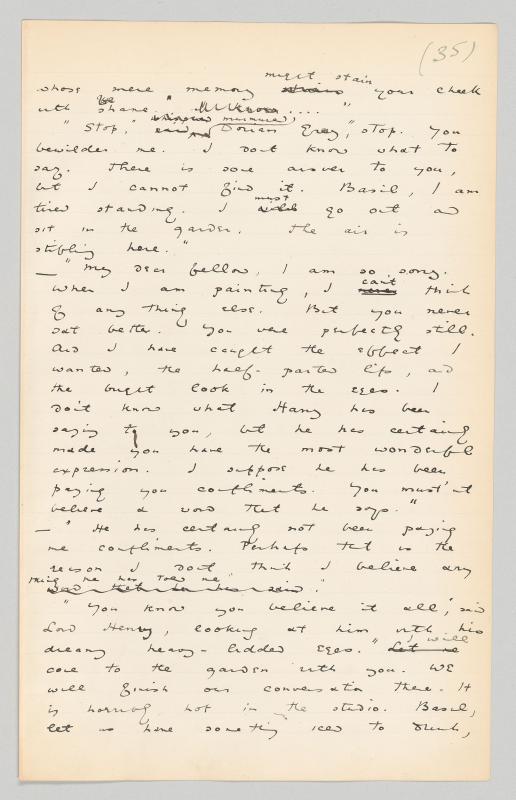 (35)
might stain
whose mere memory your cheek
with shame ...."
murmured,
"Stop," Dorian Gray, "stop. You
bewilder me. I don't know what to
say. There is some answer to you,
but I cannot find it. Basil, I am
must
tired standing. I go out and
sit in the garden. The air is
stifling here."
— "My dear fellow, I am so sorry.
can't
When I am painting, I never think
of any thing else. But you never
sat better. You were perfectly still.
And I have caught the effect I
wanted, the half-parted lips, and
the bright look in the eyes. I
don't know what Harry has been
saying to you, but he has certainly
made you have the most wonderful
expression. I suppose he has been
paying you compliments. You mustn't
believe a word that he says."
— "He has certainly not been paying
me compliments. Perhaps that is the
reason I don't think I believe any
thing he has told me
."
"You know you believe it all," said
Lord Henry, looking at him with his
I will
dreamy heavy-lidded eyes. "Let me
come to the garden with you. We
will finish our conversation there. It
is horribly hot in the studio. Basil,
let us have something iced to drink,